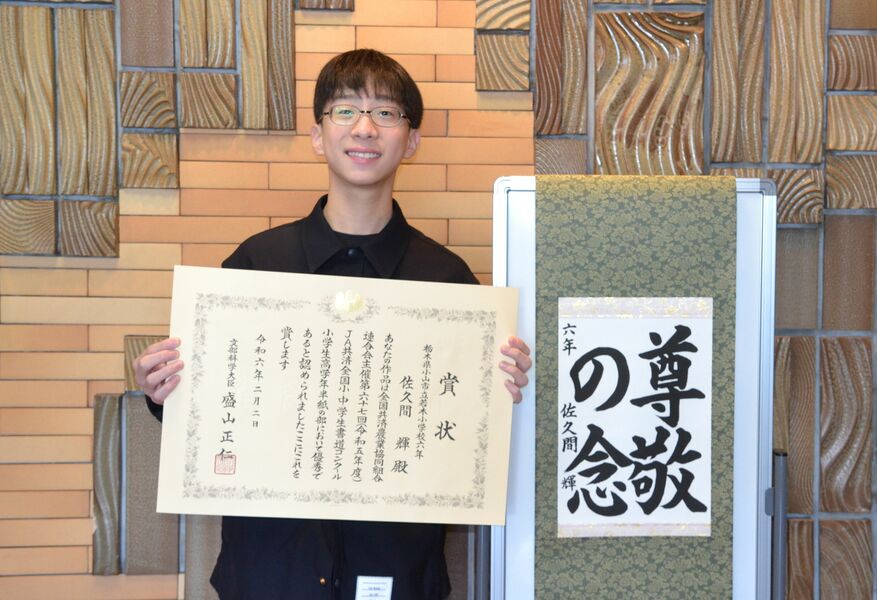 賞状
栃木県小山市立若木小学校六年
佐久間 輝 殿
あなたの作品は全国共済農業協同組合
連合会主催第六十七回(令和五年度)
JA共済全国小・中学生書道コンクール
小学生高学年半紙の部において優秀で
あると認められましたここにこれを
賞します
令和六年二月二日
文部科学大臣 盛山正仁
尊敬
の念
六年 佐久間 輝